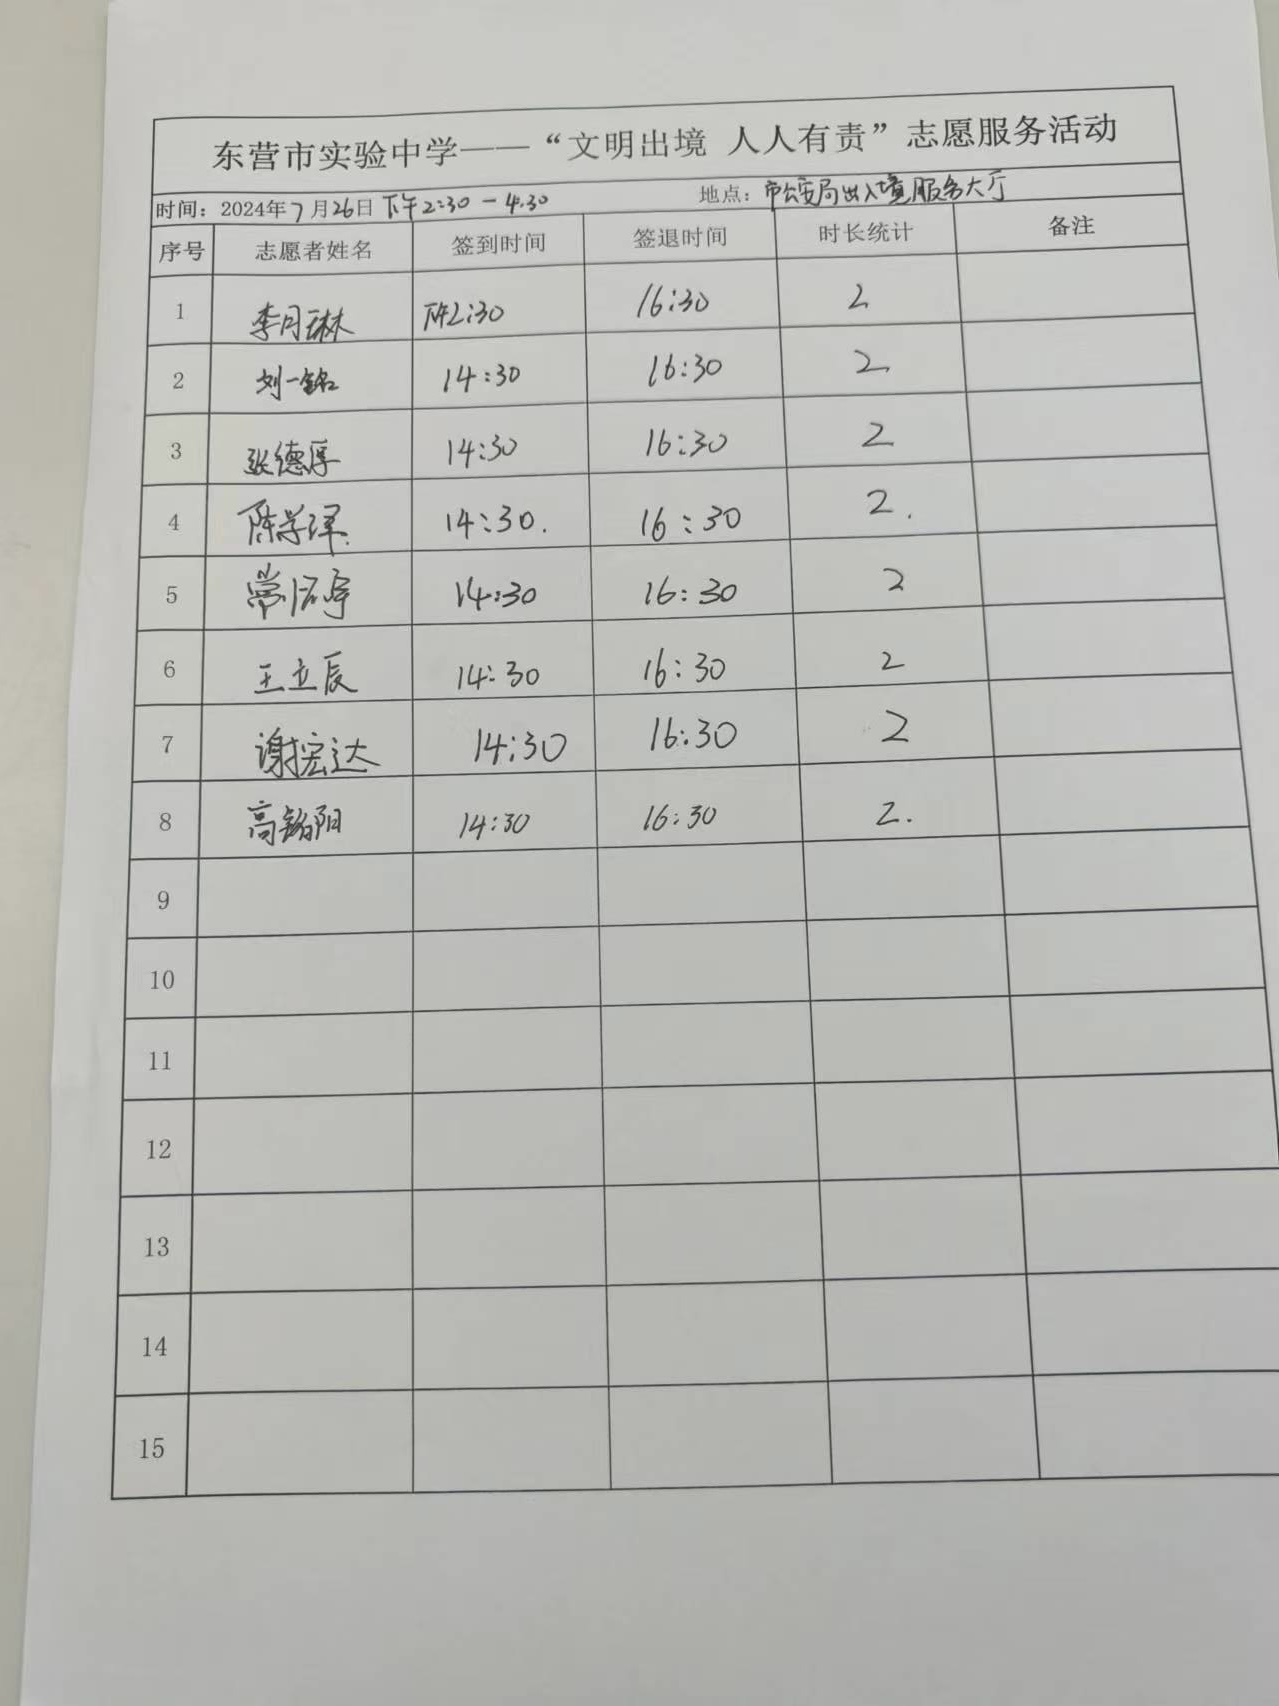 东营市实验中学——“文明出境 人人有责”志愿服务活动
时间：2024年7月26日 下午2:30－4.30 地点：市公安局出入境服务大厅
序号 志愿者姓名 签到时间 签退时间 时长统计 备注
1 李月琳 下午2:30 16:30 2
2 刘一铭 14:30 16:30 2
3 张德厚 14:30 16:30 2
4 陈学泽. 14:30. 16:30 2.
5 常 宇 14:30 16:30 2
6 王立辰 14:30 16:30 2
7 谢宏达 14:30 16:30 2
8 高铭阳 14:30 16:30 2.
9
10
11
12
13
14
15